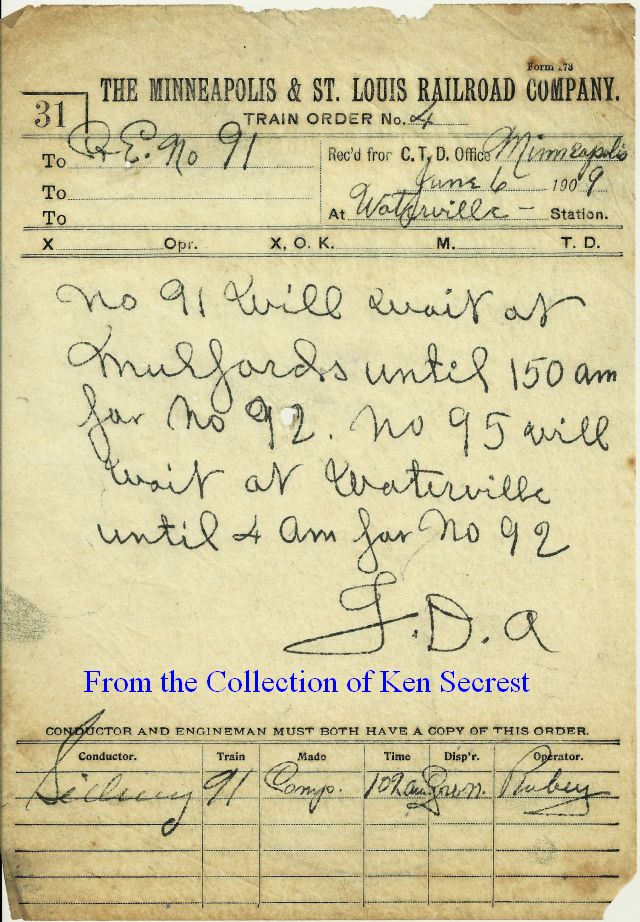 Form 173
THE MINNEAPOLIS & ST. LOUIS RAILROAD COMPANY.
31
TRAIN ORDER No. 4
To C.&E. No 91
Rec'd from C. T. D. Office Minneapolis
To
June 6 1909
To
At Waterville – Station.
X Opr. X, O. K. M. T. D.
No 91 will wait at
Mulfords until 150 am
for No 92. No 95 will
wait at Waterville
until 4 am for No 92
F.D.A
From the Collection of Ken Secrest
CONDUCTOR AND ENGINEMAN MUST BOTH HAVE A COPY OF THIS ORDER.
Conductor. Train Made Time Disp'r. Operator.
91 Comp. 102am